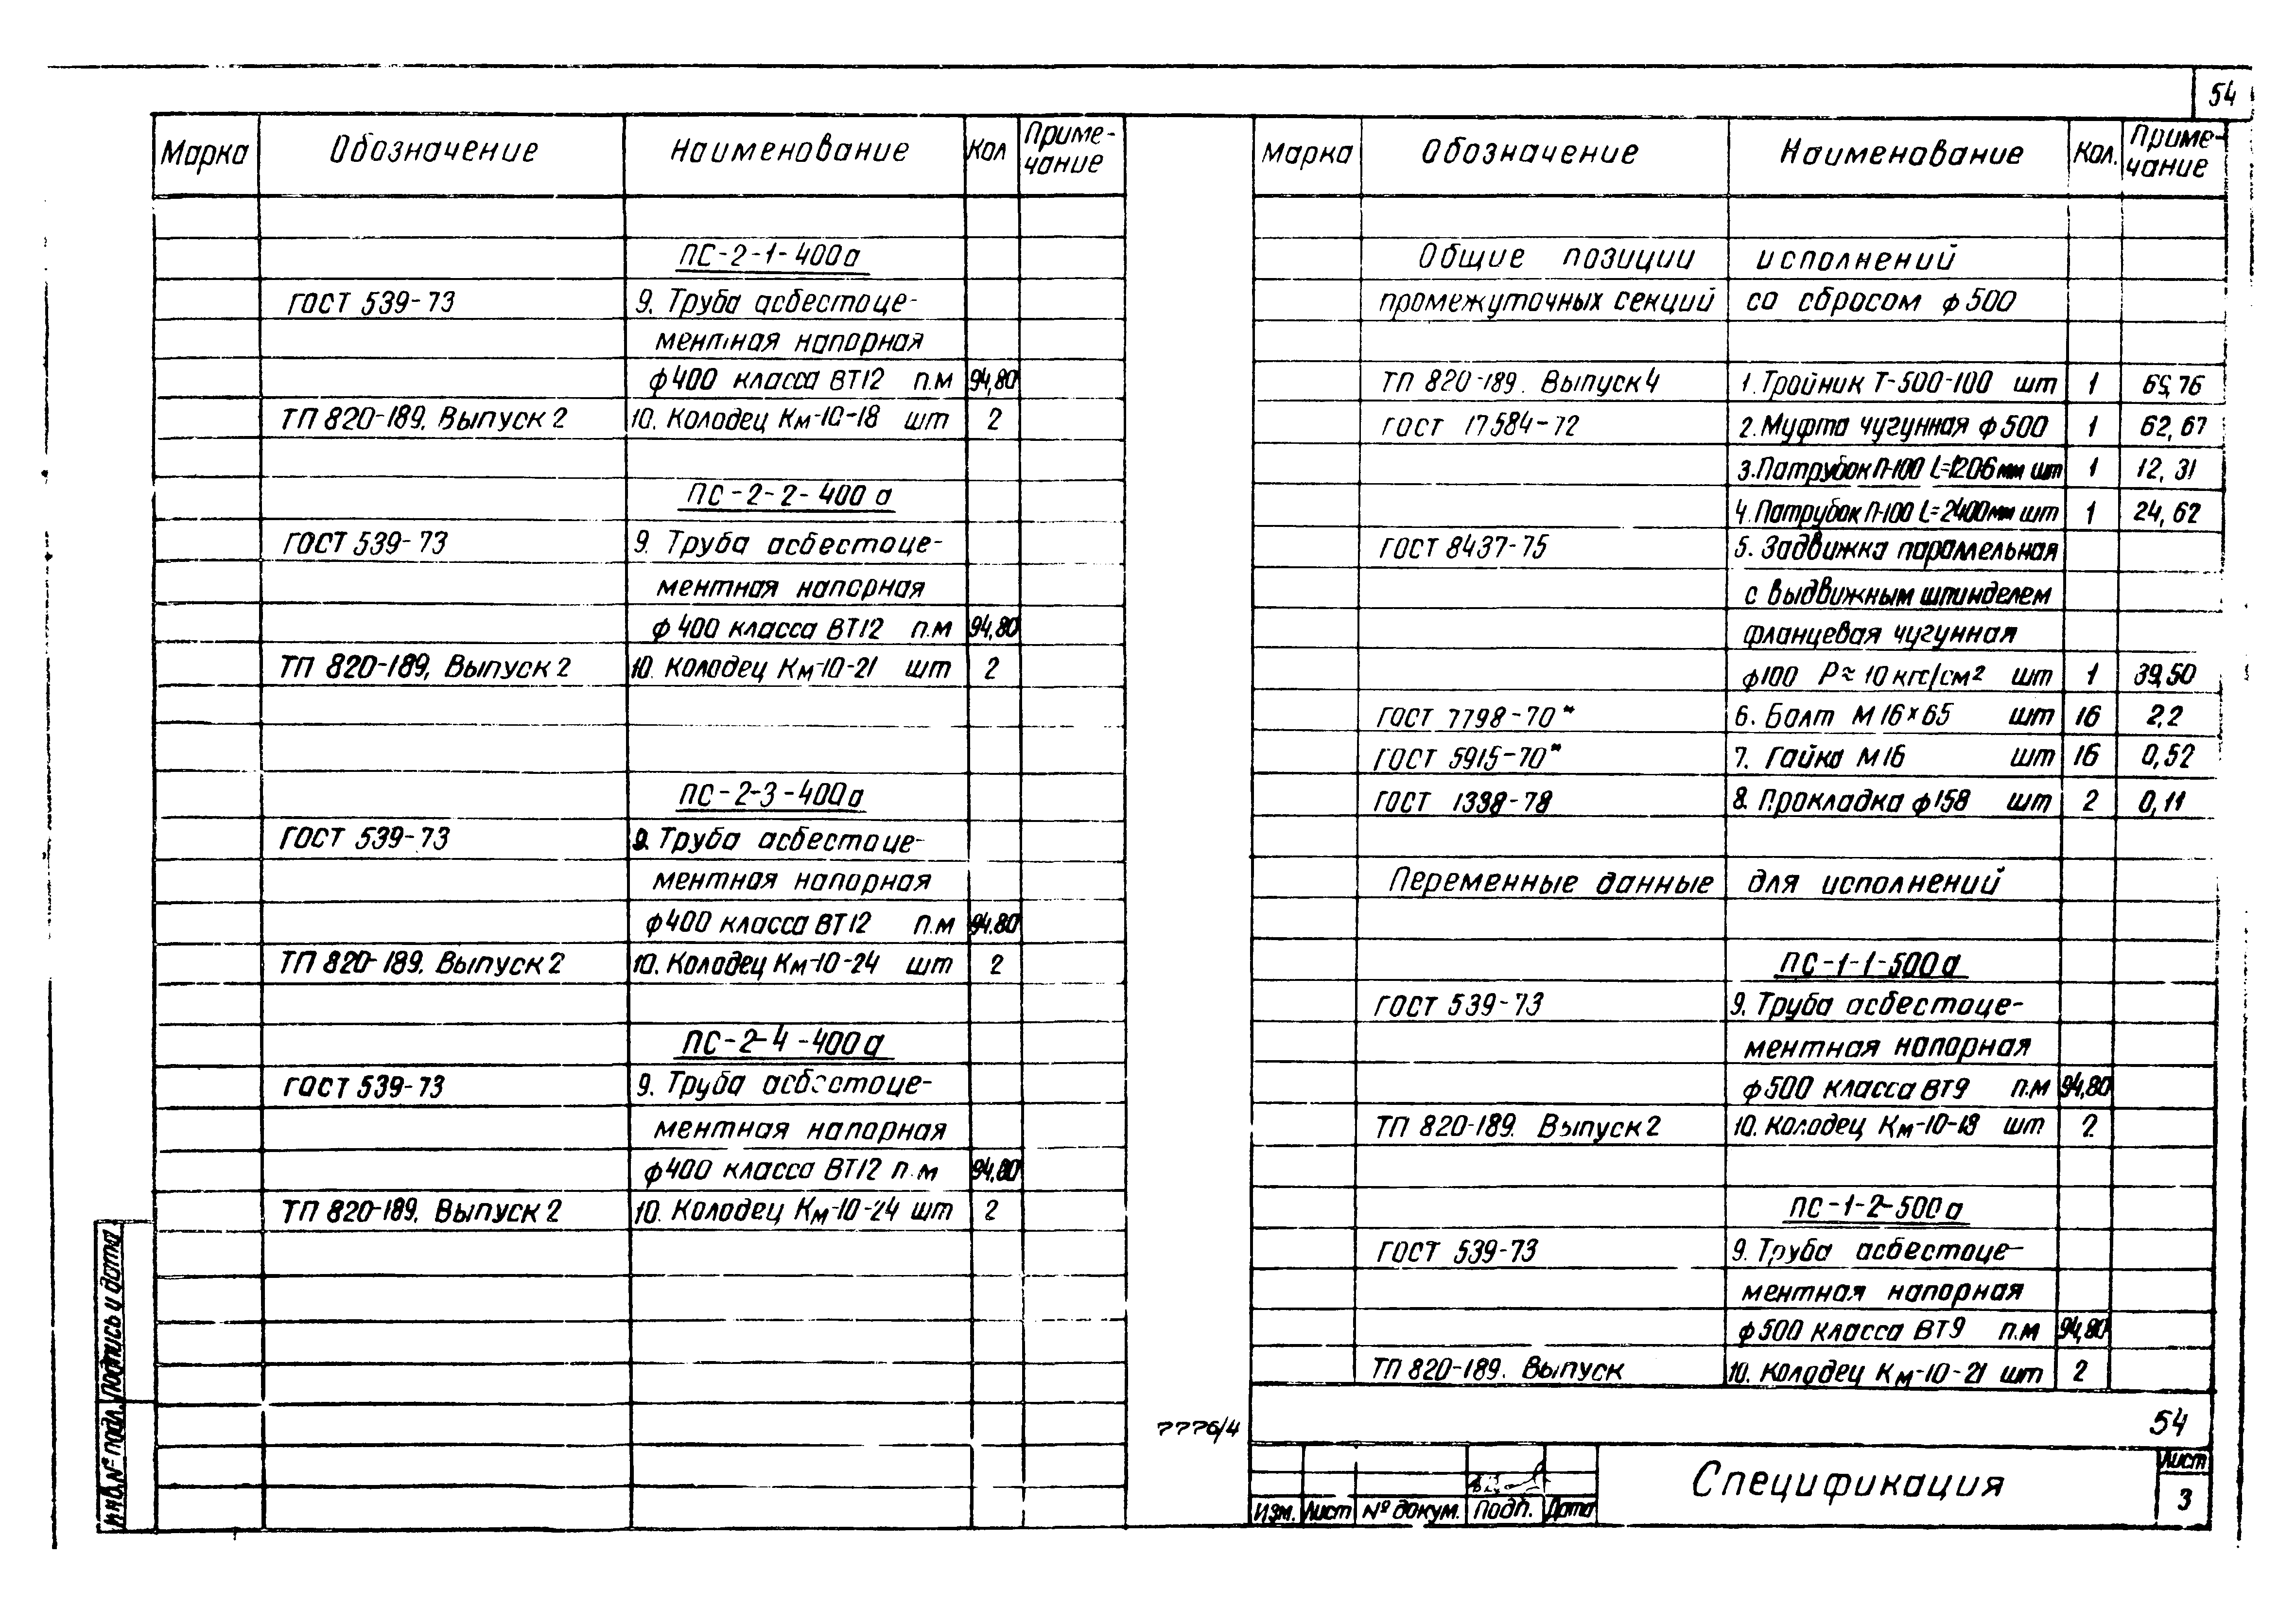 54
Марка Обозначение Наименование Кол Приме-
чание
ПС-2-1-400а
ГОСТ 539-73 9. Труба асбестоце-
ментная напорная
ф400 класса ВТ12 п.м 94,80
ТП 820-189. Выпуск 2 10. Колодец Км-10-18 шт 2
ПС-2-2-400а
ГОСТ 539-73 9. Труба асбестоце-
ментная напорная
ф400 класса ВТ12 п.м 94,80
ТП 820-189, Выпуск 2 10. Колодец Км-10-21 шт 2
ПС-2-3-400а
ГОСТ 539-73 9. Труба асбестоце-
ментная напорная
ф400 класса ВТ12 п.м 94,80
ТП 820-189. Выпуск 2 10. Колодец Км-10-24 шт 2
ПС-2-4-400а
ГОСТ 539-73 9. Труба асбестоце-
ментная напорная
ф400 класса ВТ12 п.м 94,80
ТП 820-189. Выпуск 2 10. Колодец Км-10-24 шт 2
Марка Обозначение Наименование Кол. Приме-
чание
Общие позиции исполнений
промежуточных секций со сбросом ф500
ТП 820-189. Выпуск 4 1. Тройник Т-500-100 шт 1 65,76
ГОСТ 17584-72 2. Муфта чугунная ф500 1 62,67
3. Патрубок П-100 L=1206мм шт 1 12,31
4. Патрубок П-100 L=2400мм шт 1 24,62
ГОСТ 8437-75 5. Задвижка параллельная
с выдвижным шпинделем
фланцевая чугунная
ф100 Р≈10кгс/см² шт 1 39,50
ГОСТ 7798-70* 6. Болт М16×65 шт 16 2,2
ГОСТ 5915-70* 7. Гайка М16 шт 16 0,52
ГОСТ 1338-78 8. Прокладка ф158 шт 2 0,11
Переменные данные для исполнений
ПС-1-1-500а
ГОСТ 539-73 9. Труба асбестоце-
ментная напорная
ф500 класса ВТ9 п.м 94,80
ТП 820-189. Выпуск 2 10. Колодец Км-10-18 шт 2
ПС-1-2-500а
ГОСТ 539-73 9. Труба асбестоце-
ментная напорная
ф500 класса ВТ9 п.м 94,80
ТП 820-189. Выпуск 10. Колодец Км-10-21 шт 2
54
7776/4
Изм. Лист № докум. Подп. Дата
Спецификация
Лист
3
Инв.№ подл. Подпись и дата